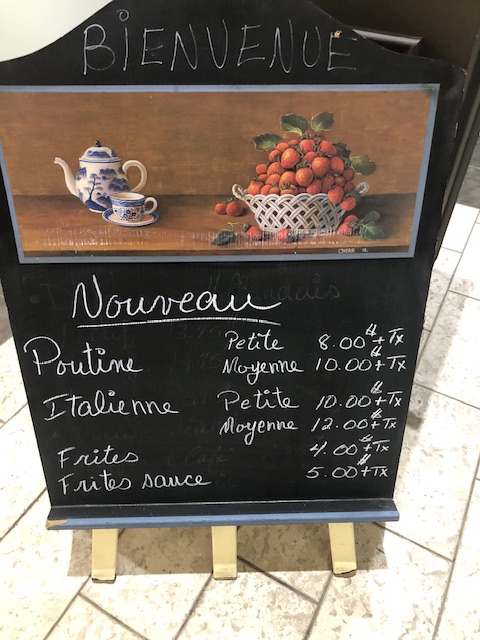 BIENVENUE
Nouveau
Poutine Petite 8.00$+Tx
Moyenne 10.00$+Tx
Italienne Petite 10.00$+Tx
Moyenne 12.00$+Tx
Frites 4.00$+Tx
Frites sauce 5.00$+Tx